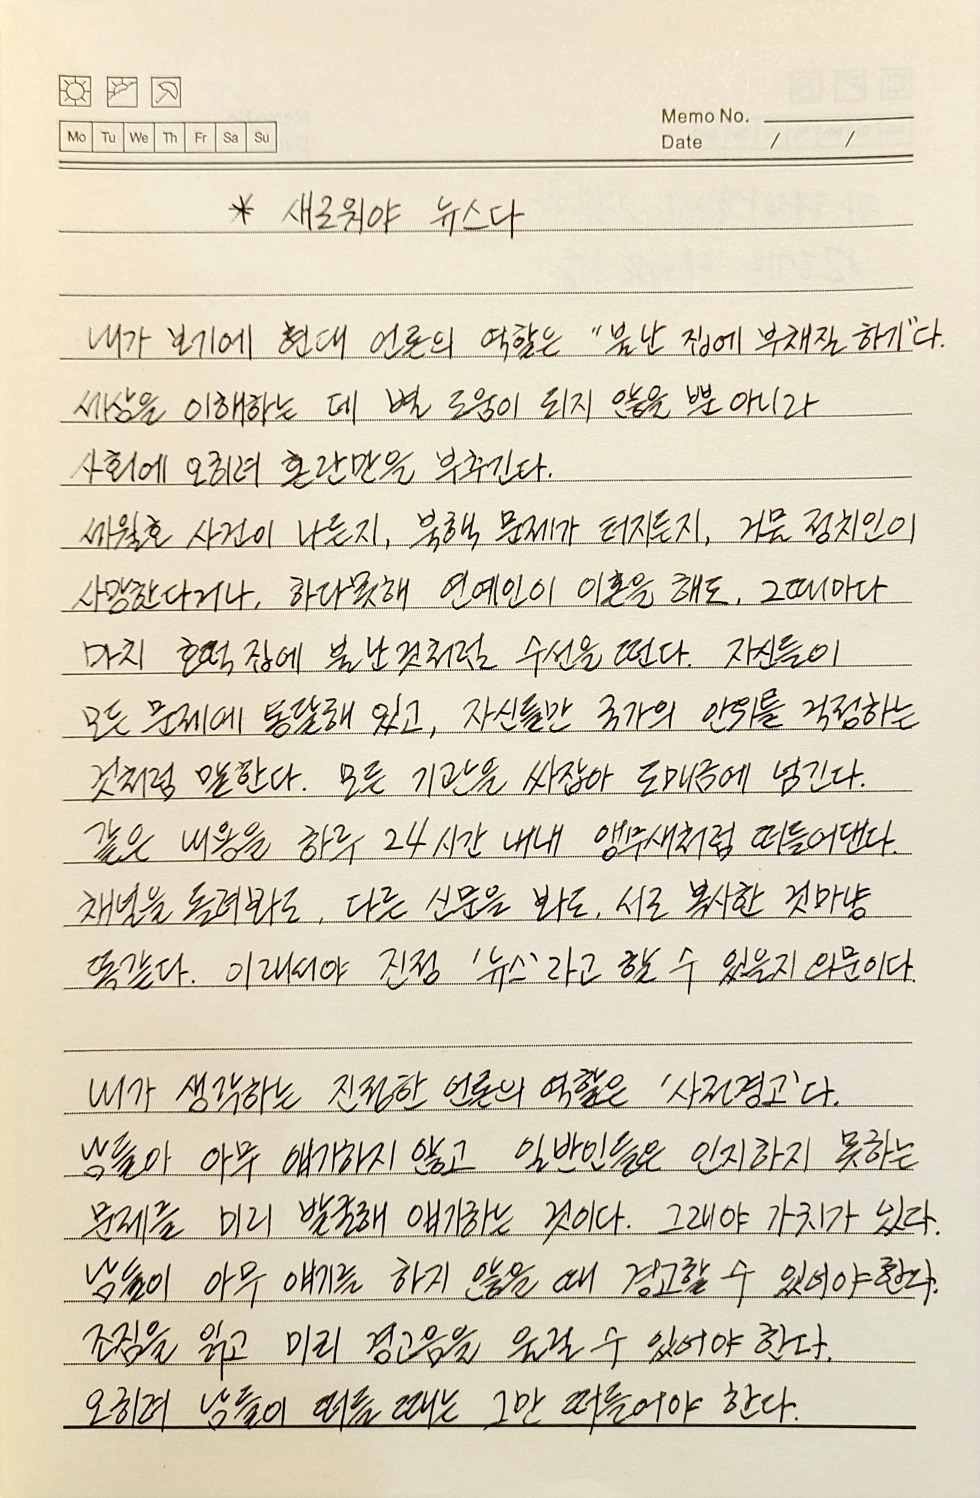 Mo Tu We Th Fr Sa Su
Memo No.
Date / /
* 새로워야 뉴스다
내가 보기에 현대 언론의 역할은 "불난 집에 부채질 하기"다.
세상을 이해하는 데 별 도움이 되지 않을 뿐 아니라
사회에 오히려 혼란만을 부추긴다.
세월호 사건이 나든지, 북핵 문제가 터지든지, 거물 정치인이
사망한다거나, 하다못해 연예인이 이혼을 해도, 그때마다
마치 호떡 집에 불난것처럼 수선을 떤다. 자신들이
모든 문제에 통달해 있고, 자신들만 국가의 안위를 걱정하는
것처럼 말한다. 모든 기관을 싸잡아 도매금에 넘긴다.
같은 내용을 하루 24시간 내내 앵무새처럼 떠들어댄다.
채널을 돌려봐도, 다른 신문을 봐도, 서로 복사한 것마냥
똑같다. 이래서야 진정 '뉴스'라고 할 수 있을지 의문이다.
내가 생각하는 진정한 언론의 역할은 '사전경고'다.
남들이 아무 얘기하지 않고 일반인들은 인지하지 못하는
문제를 미리 발굴해 얘기하는 것이다. 그래야 가치가 있다.
남들이 아무 얘기를 하지 않을 때 경고할 수 있어야 한다.
조짐을 읽고 미리 경고음을 울릴 수 있어야 한다.
오히려 남들이 떠들 때는 그만 떠들어야 한다.